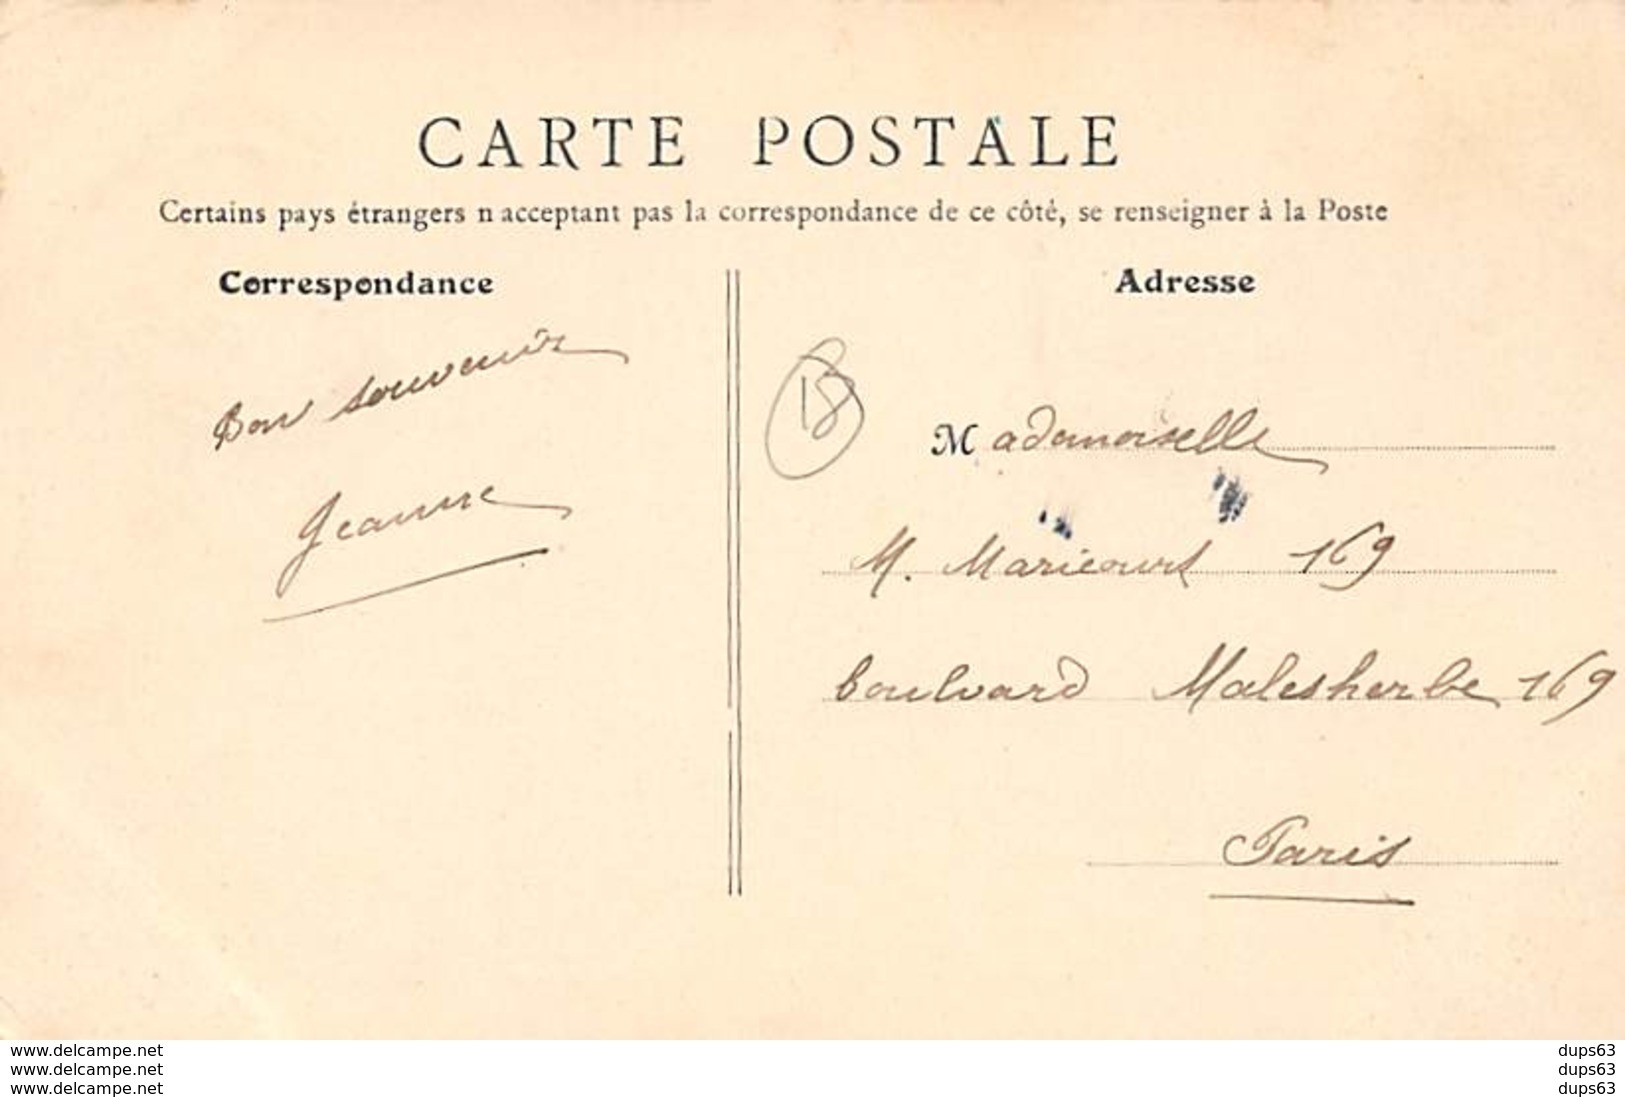 CARTE POSTALE
Certains pays étrangers n'acceptant pas la correspondance de ce côté, se renseigner à la Poste
Correspondance
Adresse
Bon souvenir
Jeanne
18
Mademoiselle
M. Maricourt 169
boulvard Malesherbe 169
Paris
www.delcampe.net
www.delcampe.net
www.delcampe.net
dups63
dups63
dups63